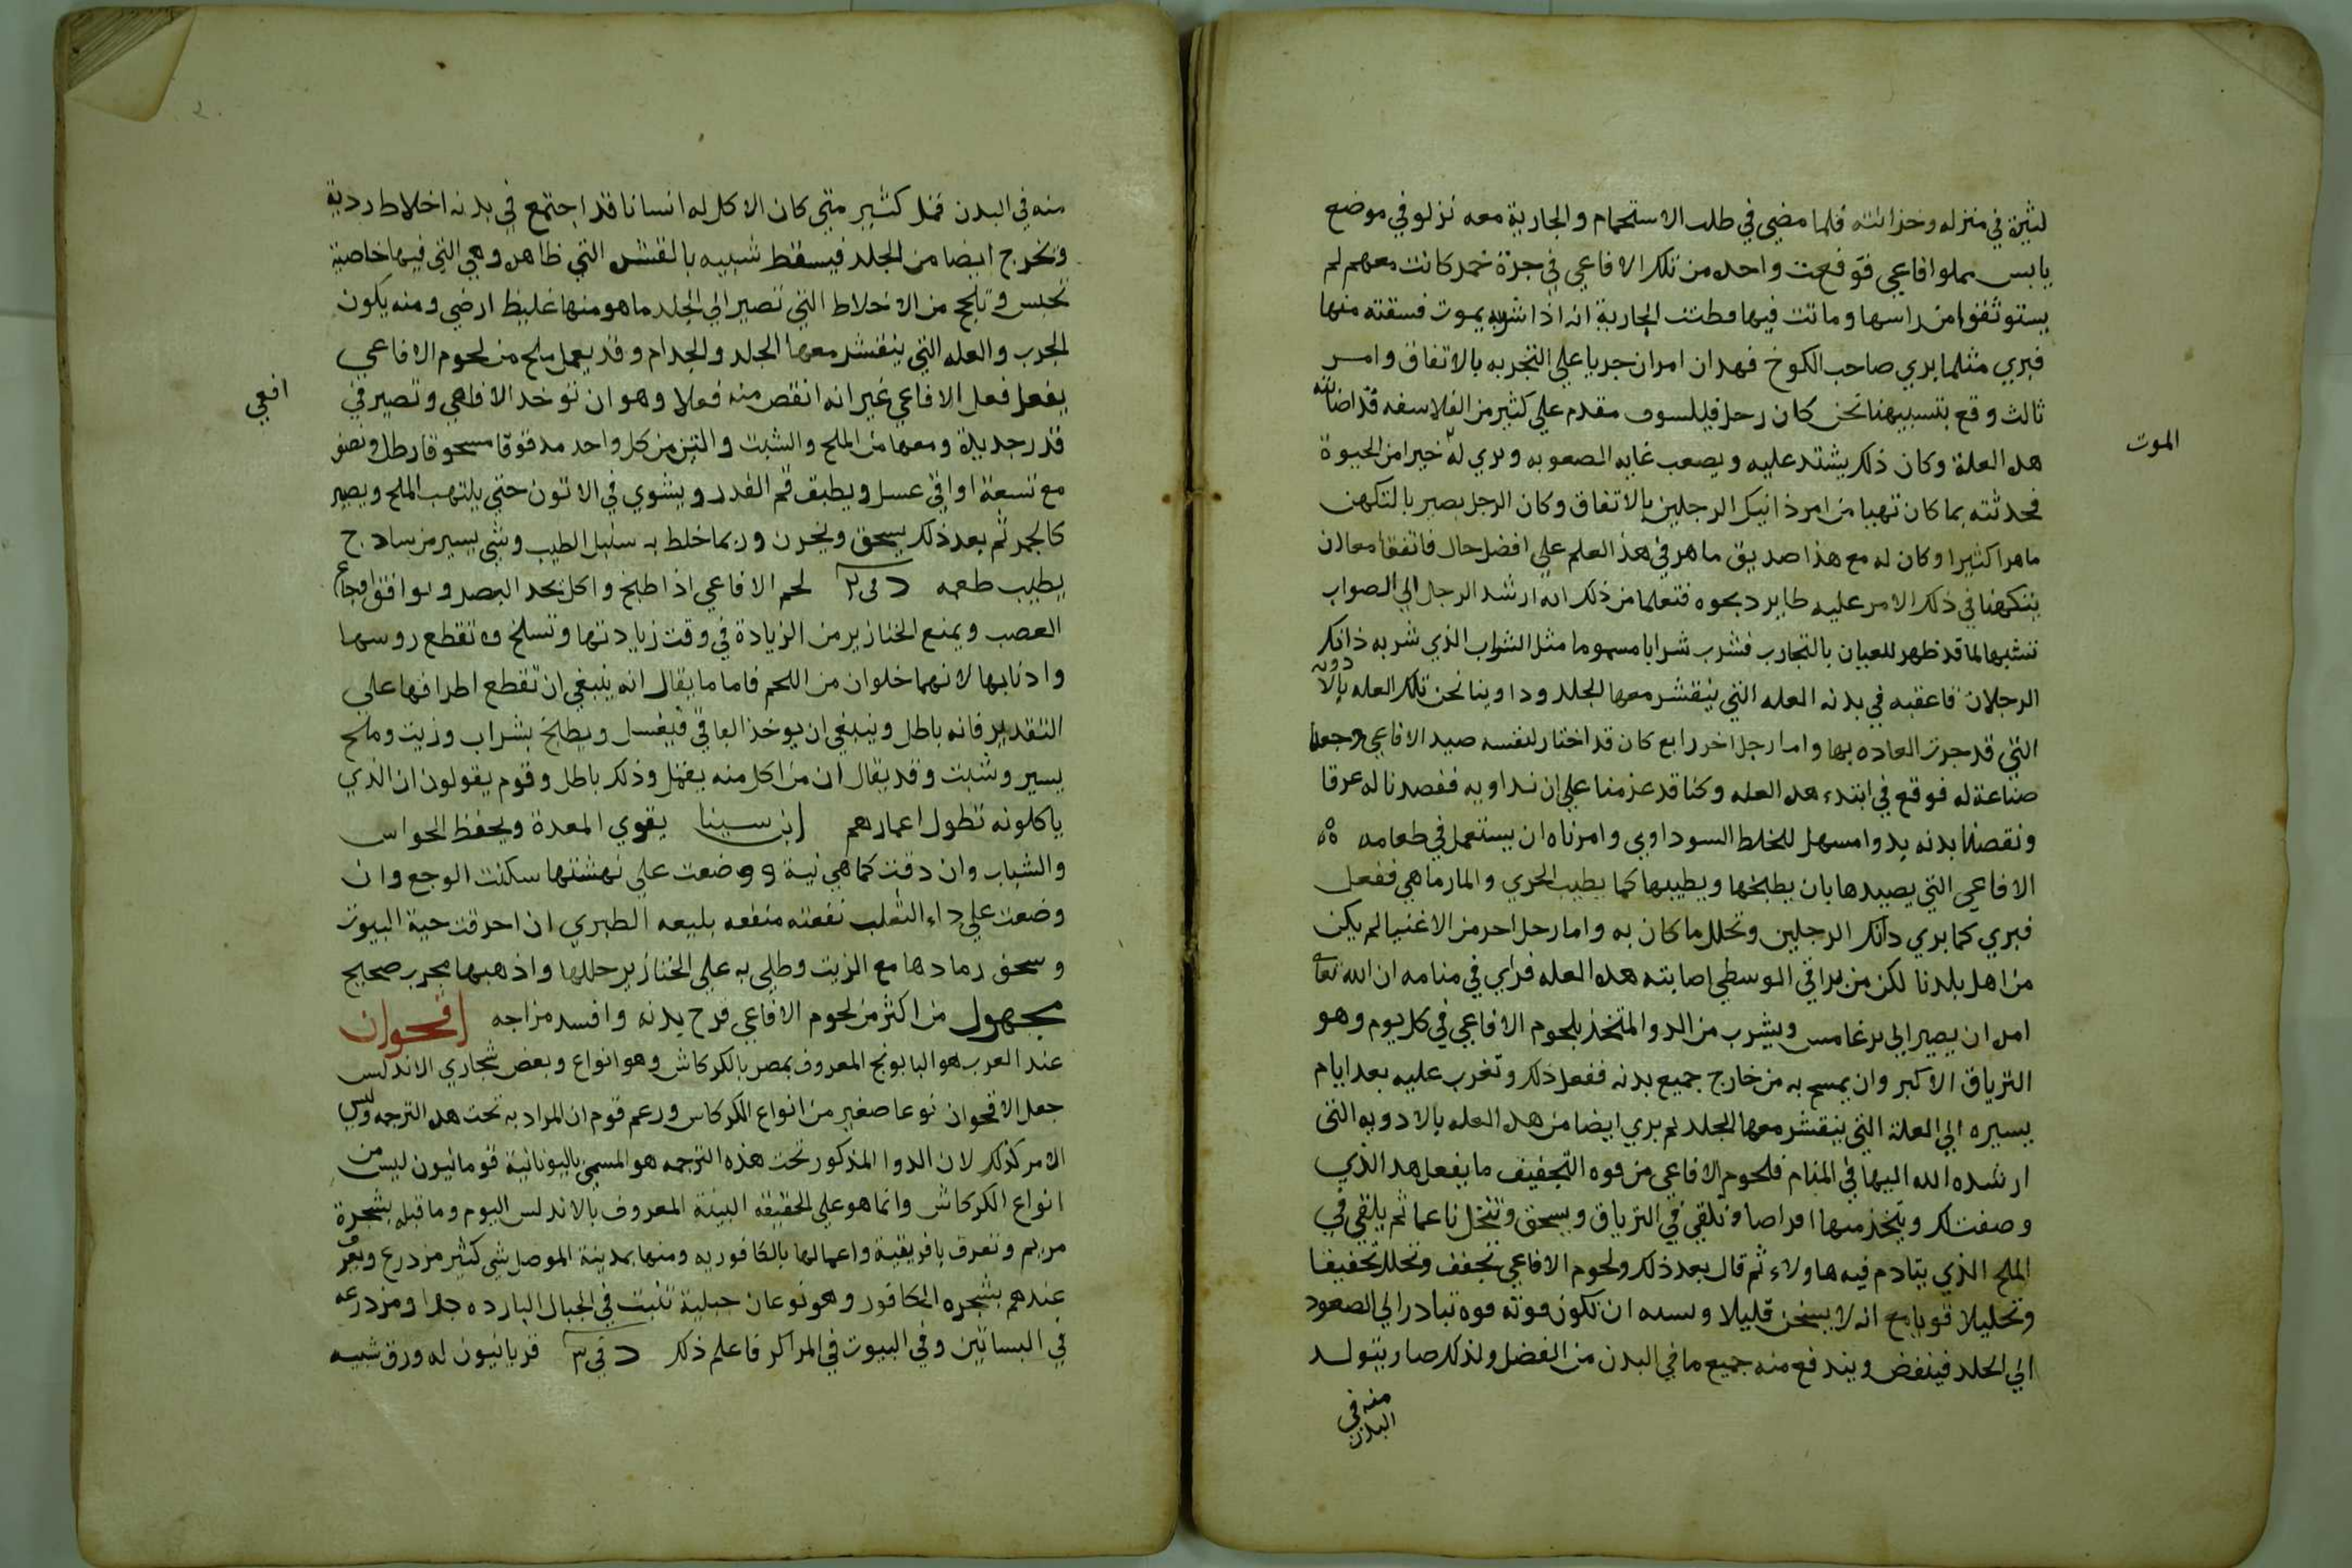 لثيرة في منزله وخزانته فلما مضي في طلب الاستحمام والجارية معه نزلو في موضع
يابس مملوا فاعي فوقعت واحده من تلك الافاعي في جرة خمر كانت معهم لم
يستوثقوا من راسها وماتت فيها فطنت الجارية انه اذا شربه يموت فسقته منها
فبري مثلما بري صاحب الكوخ فهدان امران جريا علي التجربه بالاتفاق وامر
ثالث وقع بتسبيهنا نحن كان رحل فيلسوف مقدم علي كثير من الفلاسفه قد اصابته
هده العلة وكان ذلك يشتد عليه ويصعب غايه الصعوبه ويري له خيرا من الحيوة
الموت
فحدثته بما كان تهيا من امر ذانيك الرجلين بالاتفاق وكان الرجل بصير بالتكهن
ماهرا كثيرا وكان له مع هذا صديق ماهر في هذ العلم علي افضل حال فاتفقا معا ان
يتكهنا في ذلك الامر عليه طاير فتعلما من ذلك انه ارشد الرجال الي الصواب
تشبها لما قد ظهر للعيان بالتجارب فشرب شرابا مسموما مثل الشراب الذي شربه ذانك
الرجلان فاعقبه في بدنه العله التي ينقشر معها الجلد وداوينا نحن تلك العله بالادويه
التي قد جرت العاده بها واما رجل اخر رابع كان قد اختار لنفسه صيد الافاعي وجعلها
صناعة له فوقع في ابتدء هده العله وكنا قد عزمنا علي ان نداويه ففصدنا له عرقا
ونقصنا بدنه بدوا مسهل للخلط السوداوي وامرناه ان يستعمل في طعامه
الافاعي التي يصيدها بان يطبخها ويطيبها كما يطيب الجري والمارماهي ففعل
فبري كما بري دانك الرجلين وتحلل ما كان به واما رحل احر من الاغنيا لم يكن
من اهل بلدنا لكن من براقي الوسطي اصابته هده العله فراي في منامه ان الله تعالي
امره ان يصير الي برغامس ويشرب من الدوا المتخذ بلحوم الافاعي في كل يوم وهو
الترياق الاكبر وان يمسح به من خارج جميع بدنه ففعل ذلك وتغرب عليه بعد ايام
يسيره الي العلة التي ينقشر معها الجلد ثم بري ايضا من هده العله بالادويه التي
ارشده الله اليها في المنام فلحوم الافاعي من قوه التجفيف ما يفعل هدا الذي
وصفت لك ويتخذ منها اقراصا وتلقي في الترياق ويسحق وتنخل ناعما ثم يلقي في
الملح الذي يتادم فيه هاولاء ثم قال بعد ذلك ولحوم الافاعي تجفف وتحلل تجفيفا
وتحليلا قويا مع انه لا يسخن قليلا ويسبه ان تكون قوته قوه تبادر الي الصعود
الي الجلد فينفض ويندفع منه جميع ما في البدن من الفضل ولذلك صار يتولد
منه في
البدن
منه في البدن قمل كثير متي كان الاكل له انسانا قد اجتمع في بدنه اخلاط ردية
وتخرج ايضا من الجلد فيسقط شبيه بالقشر التي ظاهره وهي التي فيها خاصية
تحبس وتلحج من الاخلاط التي تصير الي الجلد ما هو منها غليظ ارضي ومنه يكون
الجرب والعله التي ينقشر معها الجلد والجدام وقد يعمل ملح من لحوم الافاعي
يفعل فعل الافاعي غير انه انقص منه فعلا وهو ان توخد الافاعي وتصير في
افعي
قدر جديدة ومعها من الملح والشبت والتين من كل واحد مدقوقا مسحوقا رطل ونصف
مع تسعة اواقي عسل ويطبق فم القدر ويشوي في الاتون حتي يلتهب الملح ويصير
كالجمر ثم بعد ذلك يسحق ويخزن وربما خلط به سنبل الطيب وشي يسير من سادج
يطيب طعمه د في ٢ لحم الافاعي اذا طبخ واكل تحد البصر ويوافق اوجاع
العصب ويمنع الخنازير من الزيادة في وقت زيادتها وتسلخ وتقطع روسها
وادنابها لانهما خلوان من اللحم فاما ما يقال انه ينبغي ان تقطع اطرافها علي
التقدير فانه باطل وينبغي ان يوخذ الباقي فيغسل ويطبخ بشراب وزيت وملح
يسير وشبت وقد يقال ان من اكل منه يقمل وذلك باطل وقوم يقولون ان الذي
ياكلونه تطول اعمارهم ابن سينا يقوي المعدة ويحفظ الحواس
والشباب وان دقت كما هي نية ووضعت علي نهشتها سكنت الوجع وان
وضعت علي داء الثعلب نفعته منفعه بليعه الطبري ان احرقت حية البيوت
وسحق رمادها مع الزيت وطلي به علي الخنازير حللها واذهبها مجرب صحيح
مجهول من اكثر من لحوم الافاعي قرح بدنه وافسد مزاجه اقحوان
عند العرب هو البابونج المعروف بمصر بالكركاش وهو انواع وبعض شجاري الاندلس
جعل الاقحوان نوعا صغير من انواع الكركاس وزعم قوم ان المراد به تحت هده الترجمه وليس
الامر كذلك لان الدوا المذكور تحت هذه الترجمه هو المسمي باليونانية قومانيون ليس من
انواع الكركاش وانما هو علي الحقيقه البينة المعروف بالاندلس اليوم وما قبله بشجرة
مريم وتعرف بافريقية واعمالها بالكافوريه ومنها بمدينة الموصل شي كثير مزدرع ويعرف
عندهم بشجره الكافور وهو نوعان جبلية تنبت في الجبال البارده جدا ومزدرعه
في البساتين وفي البيوت في المراكز فاعلم ذلك د في ٣ قربانيون له ورق شبيه